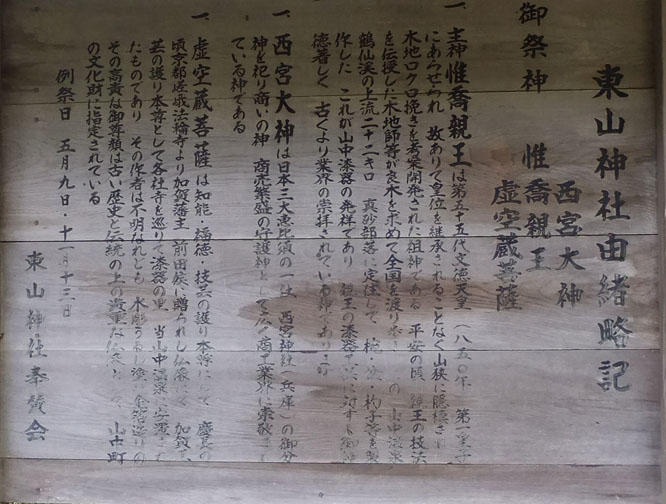 東山神社由緒略記
御祭神
西宮大神
惟喬親王
虚空蔵菩薩
一、主神惟喬親王は第五十五代文徳天皇(八五〇年)第一皇子
にあらせられ 故ありて皇位を継承されることなく山狭に隠棲され
木地ロクロ挽きを考案開発された祖神である 平安の頃 親王の技法
を伝授した木地師等が良木を求めて全国を渡り歩き の山中温泉
鶴仙渓の上流二十二キロ 真砂部落に定住して、椀・盆・杓子等を製
作した これが山中漆器の発祥であり 親王の漆器 に対する御
徳著しく 古くより業界の崇拝されている神 であり
一、西宮大神は日本三大恵比須の一社 西宮神社(兵庫)の御分
神を祀り商いの神 商売繁盛の守護神として広く商工業界に崇敬され
ている神である
一、虚空蔵菩薩は知能・福徳・技芸の護り本尊にして 慶長の
頃京都嵯峨法輪寺より加賀藩主 前田侯へ贈られし仏像 加賀
芸の護り本尊として各社寺を巡りて漆器の里、当山中温泉に安置され
たものであり その作者は不明なれども 木彫うるし塗、金箔造りの
その高貴な御尊顔は古い歴史と伝統の上の貴重な仏像として、山中町
の文化財に指定されている
例祭日 五月九日・十一月十三日
東山神社奉賛会